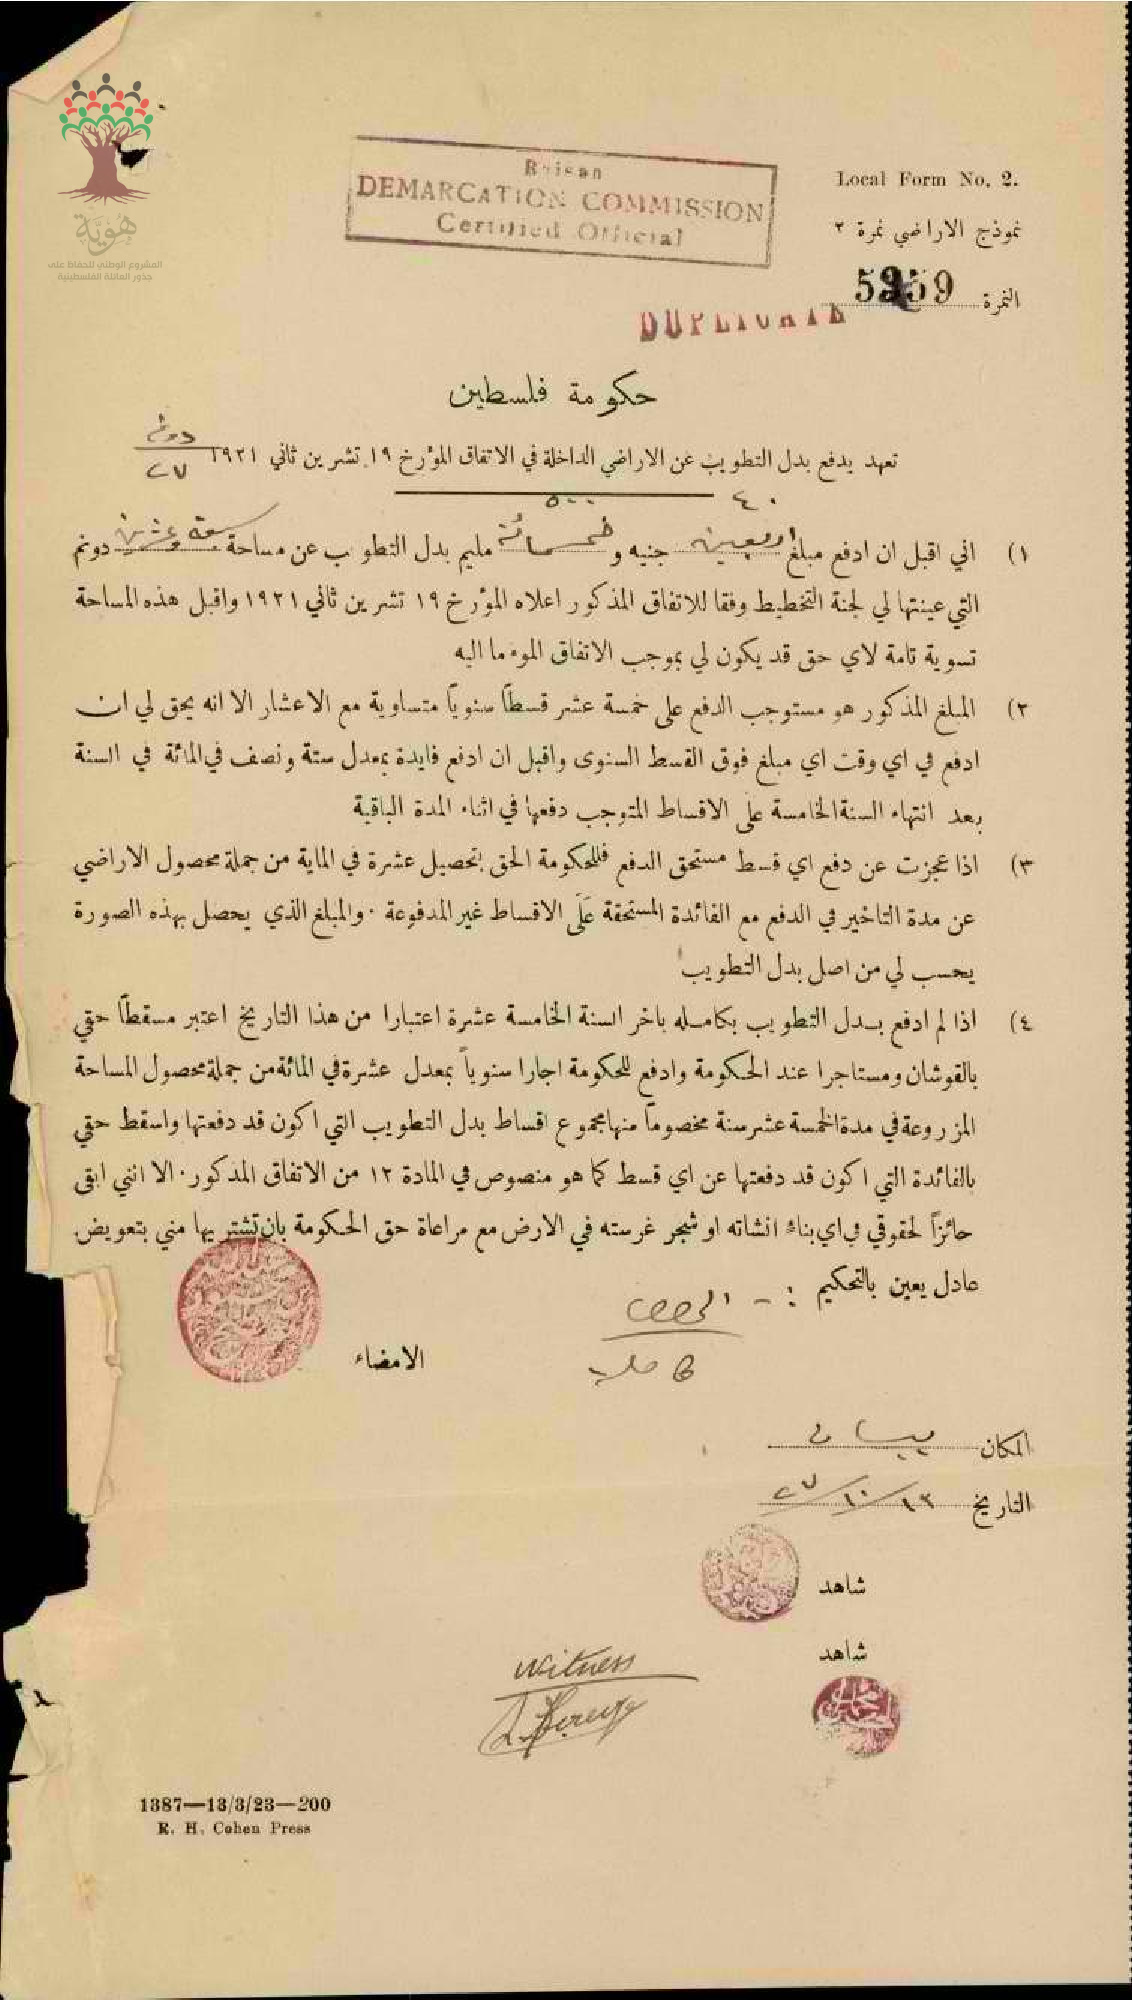 هُويّة
المشروع الوطني للحفاظ على
جذور العائلة الفلسطينية
Beisan
DEMARCATION COMMISSION
Certified Official
Local Form No. 2.
نموذج الاراضي نمرة ٢
النمرة 5959
DUPLICATE
حكومة فلسطين
دونم
٢٧
تعهد بدفع بدل التطويب عن الاراضي الداخلة في الاتفاق المؤرخ ١٩ تشرين ثاني ١٩٢١
٤٠ ٥٠٠
١) اني اقبل ان ادفع مبلغ اربعين جنيه و خمسمائة مليم بدل التطويب عن مساحة سبعة وعشرين دونم
التي عينتها لي لجنة التخطيط وفقا للاتفاق المذكور اعلاه المؤرخ ١٩ تشرين ثاني ١٩٢١ واقبل هذه المساحة
تسوية تامة لاي حق قد يكون لي بموجب الاتفاق الموء ما اليه
٢) المبلغ المذكور هو مستوجب الدفع على خمسة عشر قسطًا سنويًا متساوية مع الاعشار الا انه يحق لي ان
ادفع في اي وقت اي مبلغ فوق القسط السنوى واقبل ان ادفع فايدة بمعدل ستة ونصف في المائة في السنة
بعد انتهاء السنة الخامسة على الاقساط المتوجب دفعها في اثناء المدة الباقية
٣) اذا عجزت عن دفع اي قسط مستحق الدفع فللحكومة الحق بتحصيل عشرة في الماية من جملة محصول الاراضي
عن مدة التاخير في الدفع مع الفائدة المستحقة عَلَى الاقساط غير المدفوعة . والمبلغ الذي يحصل بهذه الصورة
يحسب لي من اصل بدل التطويب
٤) اذا لم ادفع بدل التطويب بكامله باخر السنة الخامسة عشرة اعتبارا من هذا التاريخ اعتبر مسقطًا حقي
بالقوشان ومستاجرا عند الحكومة وادفع للحكومة اجارا سنوياً بمعدل عشرة في المائة من جملة محصول المساحة
المزروعة في مدة الخمسة عشر سنة مخصوماً منها مجموع اقساط بدل التطويب التي اكون قد دفعتها واسقط حقي
بالفائدة التي اكون قد دفعتها عن اي قسط كما هو منصوص في المادة ١٢ من الاتفاق المذكور . الا انني ابقى
حائزاً لحقوقي في اي بناء انشاته او شجر غرسته في الارض مع مراعاة حق الحكومة بان تشتريها مني بتعويض
عادل يعين بالتحكيم : -
الامضاء
المكان بيسان
التاريخ ١٣/١٠/٢٧
شاهد
شاهد
witness
1387—13/3/23—200
R. H. Cohen Press